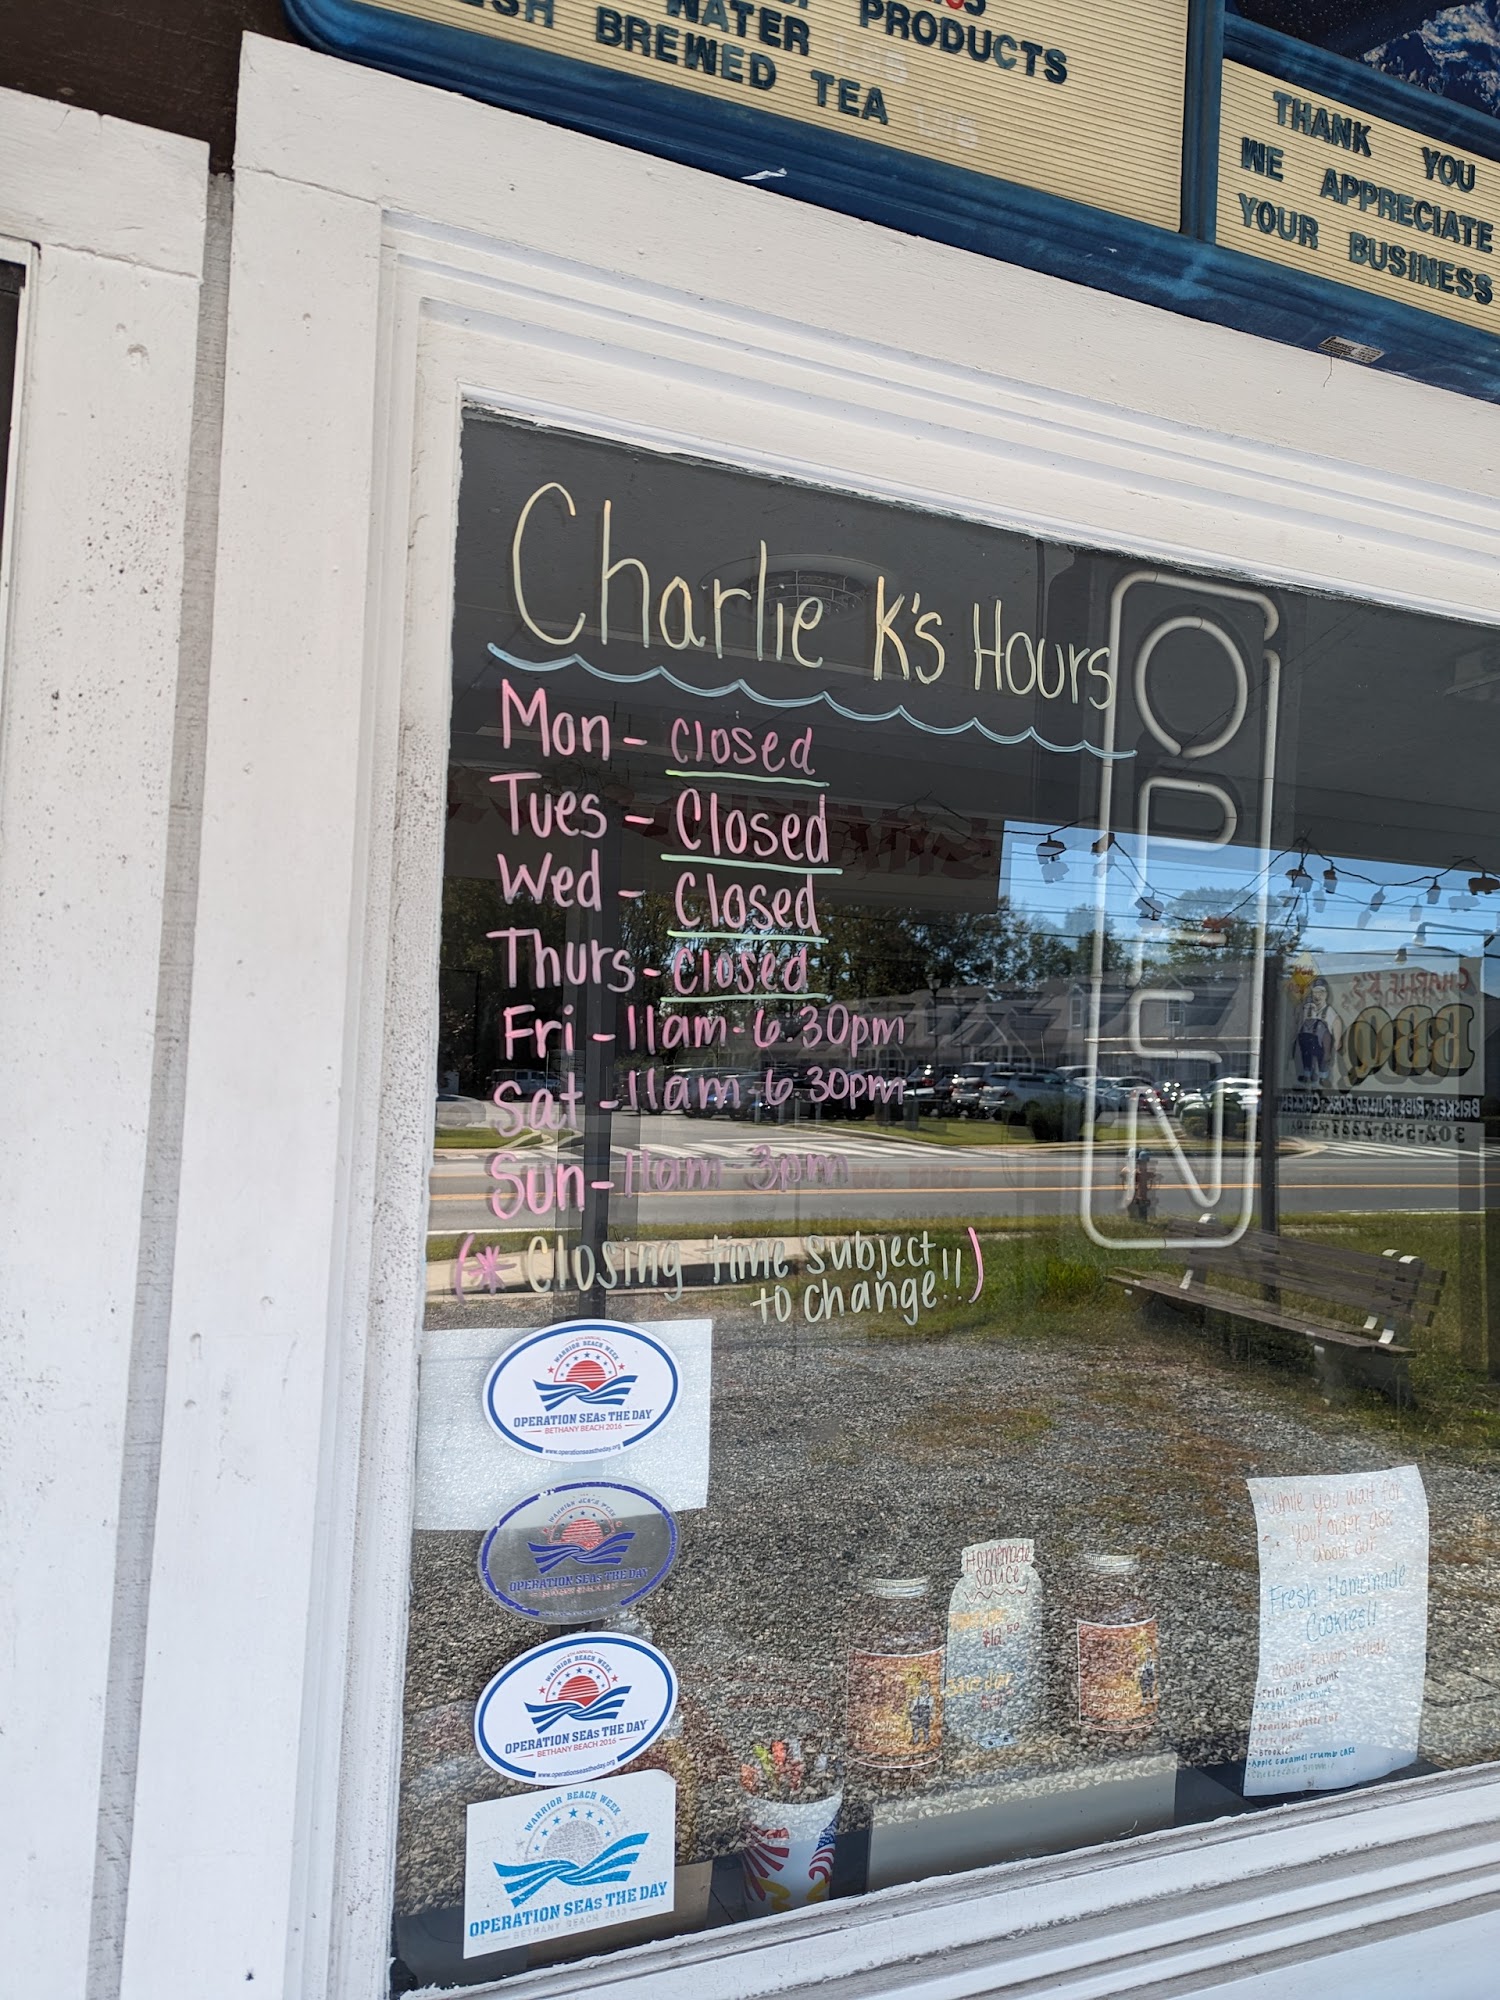 PRODUCTS
WATER
BREWED TEA
THANK YOU
WE APPRECIATE
YOUR BUSINESS
Charlie K's Hours
Mon - Closed
Tues - Closed
Wed - Closed
Thurs - Closed
Fri - 11am - 6:30pm
Sat - 11am - 6:30pm
Sun - 11am - 3pm
(* Closing time subject
to change!!)
OPEN
CHARLIE K'S
BBQ
WARRIOR BEACH WEEK
OPERATION SEAs THE DAY
BETHANY BEACH 2016
www.operationseastheday.org
WARRIOR BEACH WEEK
OPERATION SEAs THE DAY
WARRIOR BEACH WEEK
OPERATION SEAs THE DAY
BETHANY BEACH 2016
www.operationseastheday.org
WARRIOR BEACH WEEK
OPERATION SEAs THE DAY
BETHANY BEACH 2013
Homemade
Sauce
$12.50
While you wait for
your order ask
about our
Fresh Homemade
Cookies!!
• Triple choc chunk
• Peanut butter cup
• Brookie
• Apple caramel crumb cake